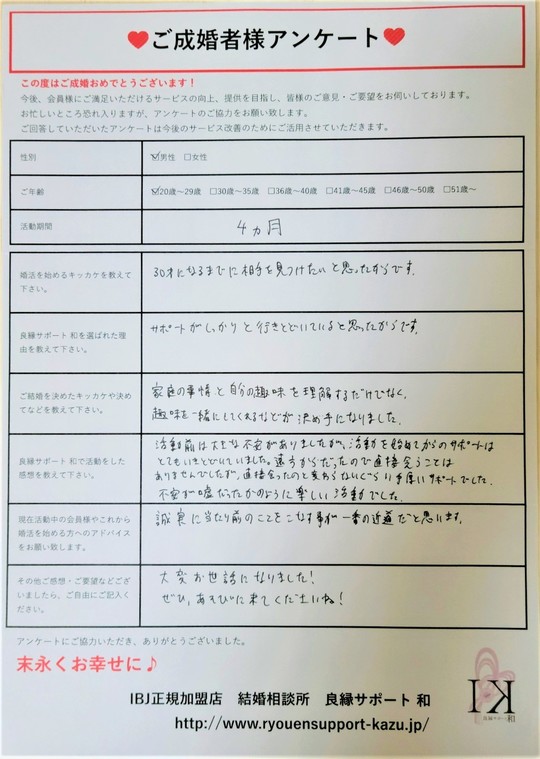 ♥ご成婚者様アンケート♥
この度はご成婚おめでとうございます！
今後、会員様にご満足いただけるサービスの向上、提供を目指し、皆様のご意見・ご要望をお伺いしております。
お忙しいところ恐れ入りますが、アンケートのご協力をお願い致します。
ご回答していただいたアンケートは今後のサービス改善のためにご活用させていただきます。
性別 ☑男性 □女性
ご年齢 ☑20歳～29歳 □30歳～35歳 □36歳～40歳 □41歳～45歳 □46歳～50歳 □51歳～
活動期間 4ヵ月
婚活を始めるキッカケを教えて
下さい。
30才になるまでに相手を見つけたいと思ったからです。
良縁サポート 和を選ばれた理
由を教えて下さい。
サポートがしっかりと行きとどいていると思ったからです。
ご結婚を決めたキッカケや決め
てなどを教えて下さい。
家庭の事情と自分の趣味を理解するだけでなく、
趣味を一緒にしてくれるなどが決め手になりました。
良縁サポート 和で活動をした
感想を教えて下さい。
活動前は大きな不安がありましたが、活動を始めてからのサポートは
とてもいきとどいていました。遠方からだったので直接会うことは
ありませんでしたが、直接会ったのと変わらないぐらい手厚いサポートでした。
不安が嘘だったかのように楽しい活動でした。
現在活動中の会員様やこれから
婚活を始める方へのアドバイス
をお願い致します。
誠実に当たり前のことをこなす事が一番の近道だと思います。
その他ご感想・ご要望などござ
いましたら、ご自由にご記入く
ださい。
大変お世話になりました！
ぜひ、あそびに来てくださいね！
アンケートにご協力いただき、ありがとうございました。
末永くお幸せに♪
IBJ正規加盟店 結婚相談所 良縁サポート 和
http://www.ryouensupport-kazu.jp/
IK
良縁サポート 和